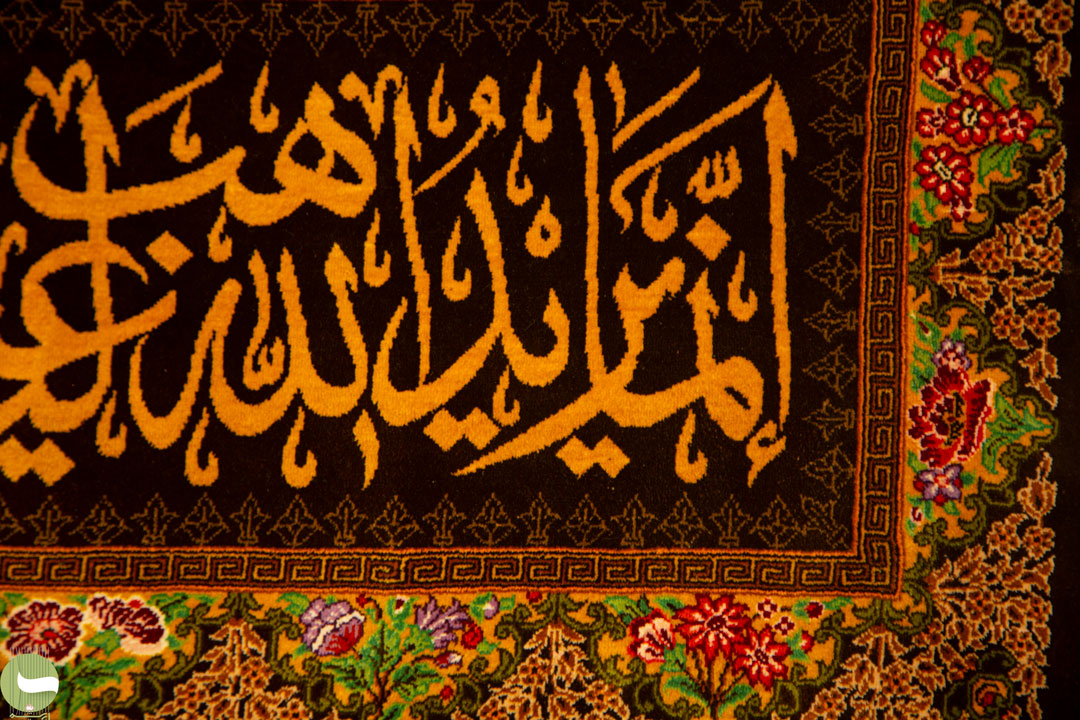 إِنَّمَا يُرِيدُ اللَّهُ لِيُذْهِبَ